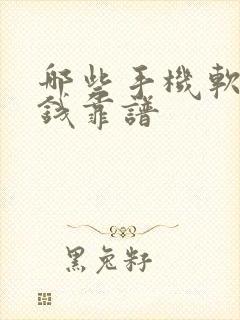 哪些手機軟
錢靠譜
黑兔籽